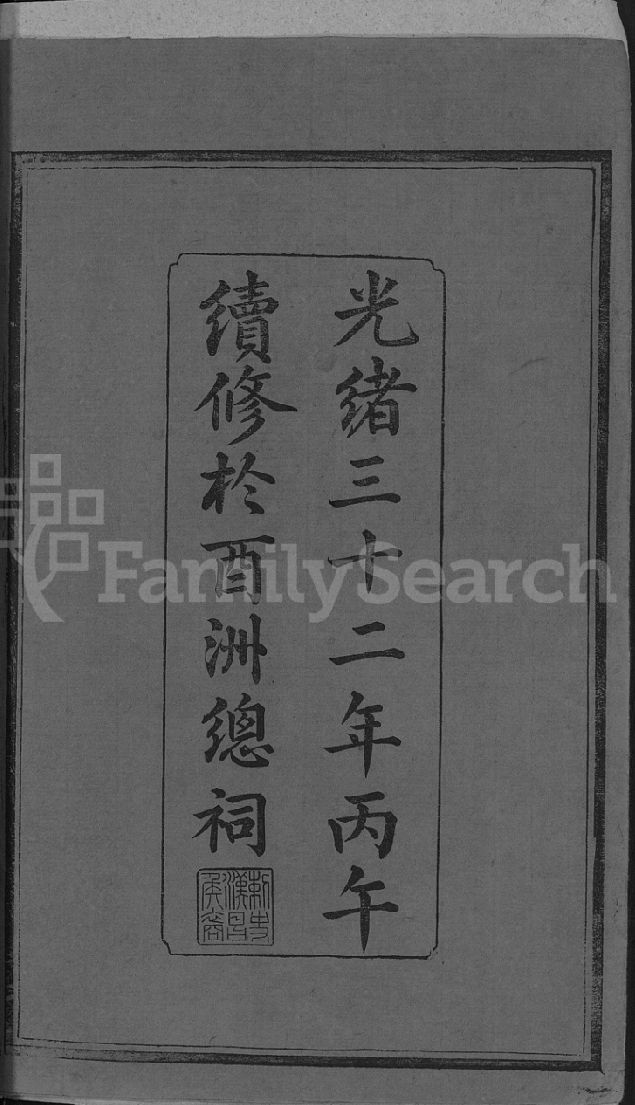 光緒三十二年丙午
續修於酉洲總祠
FamilySearch